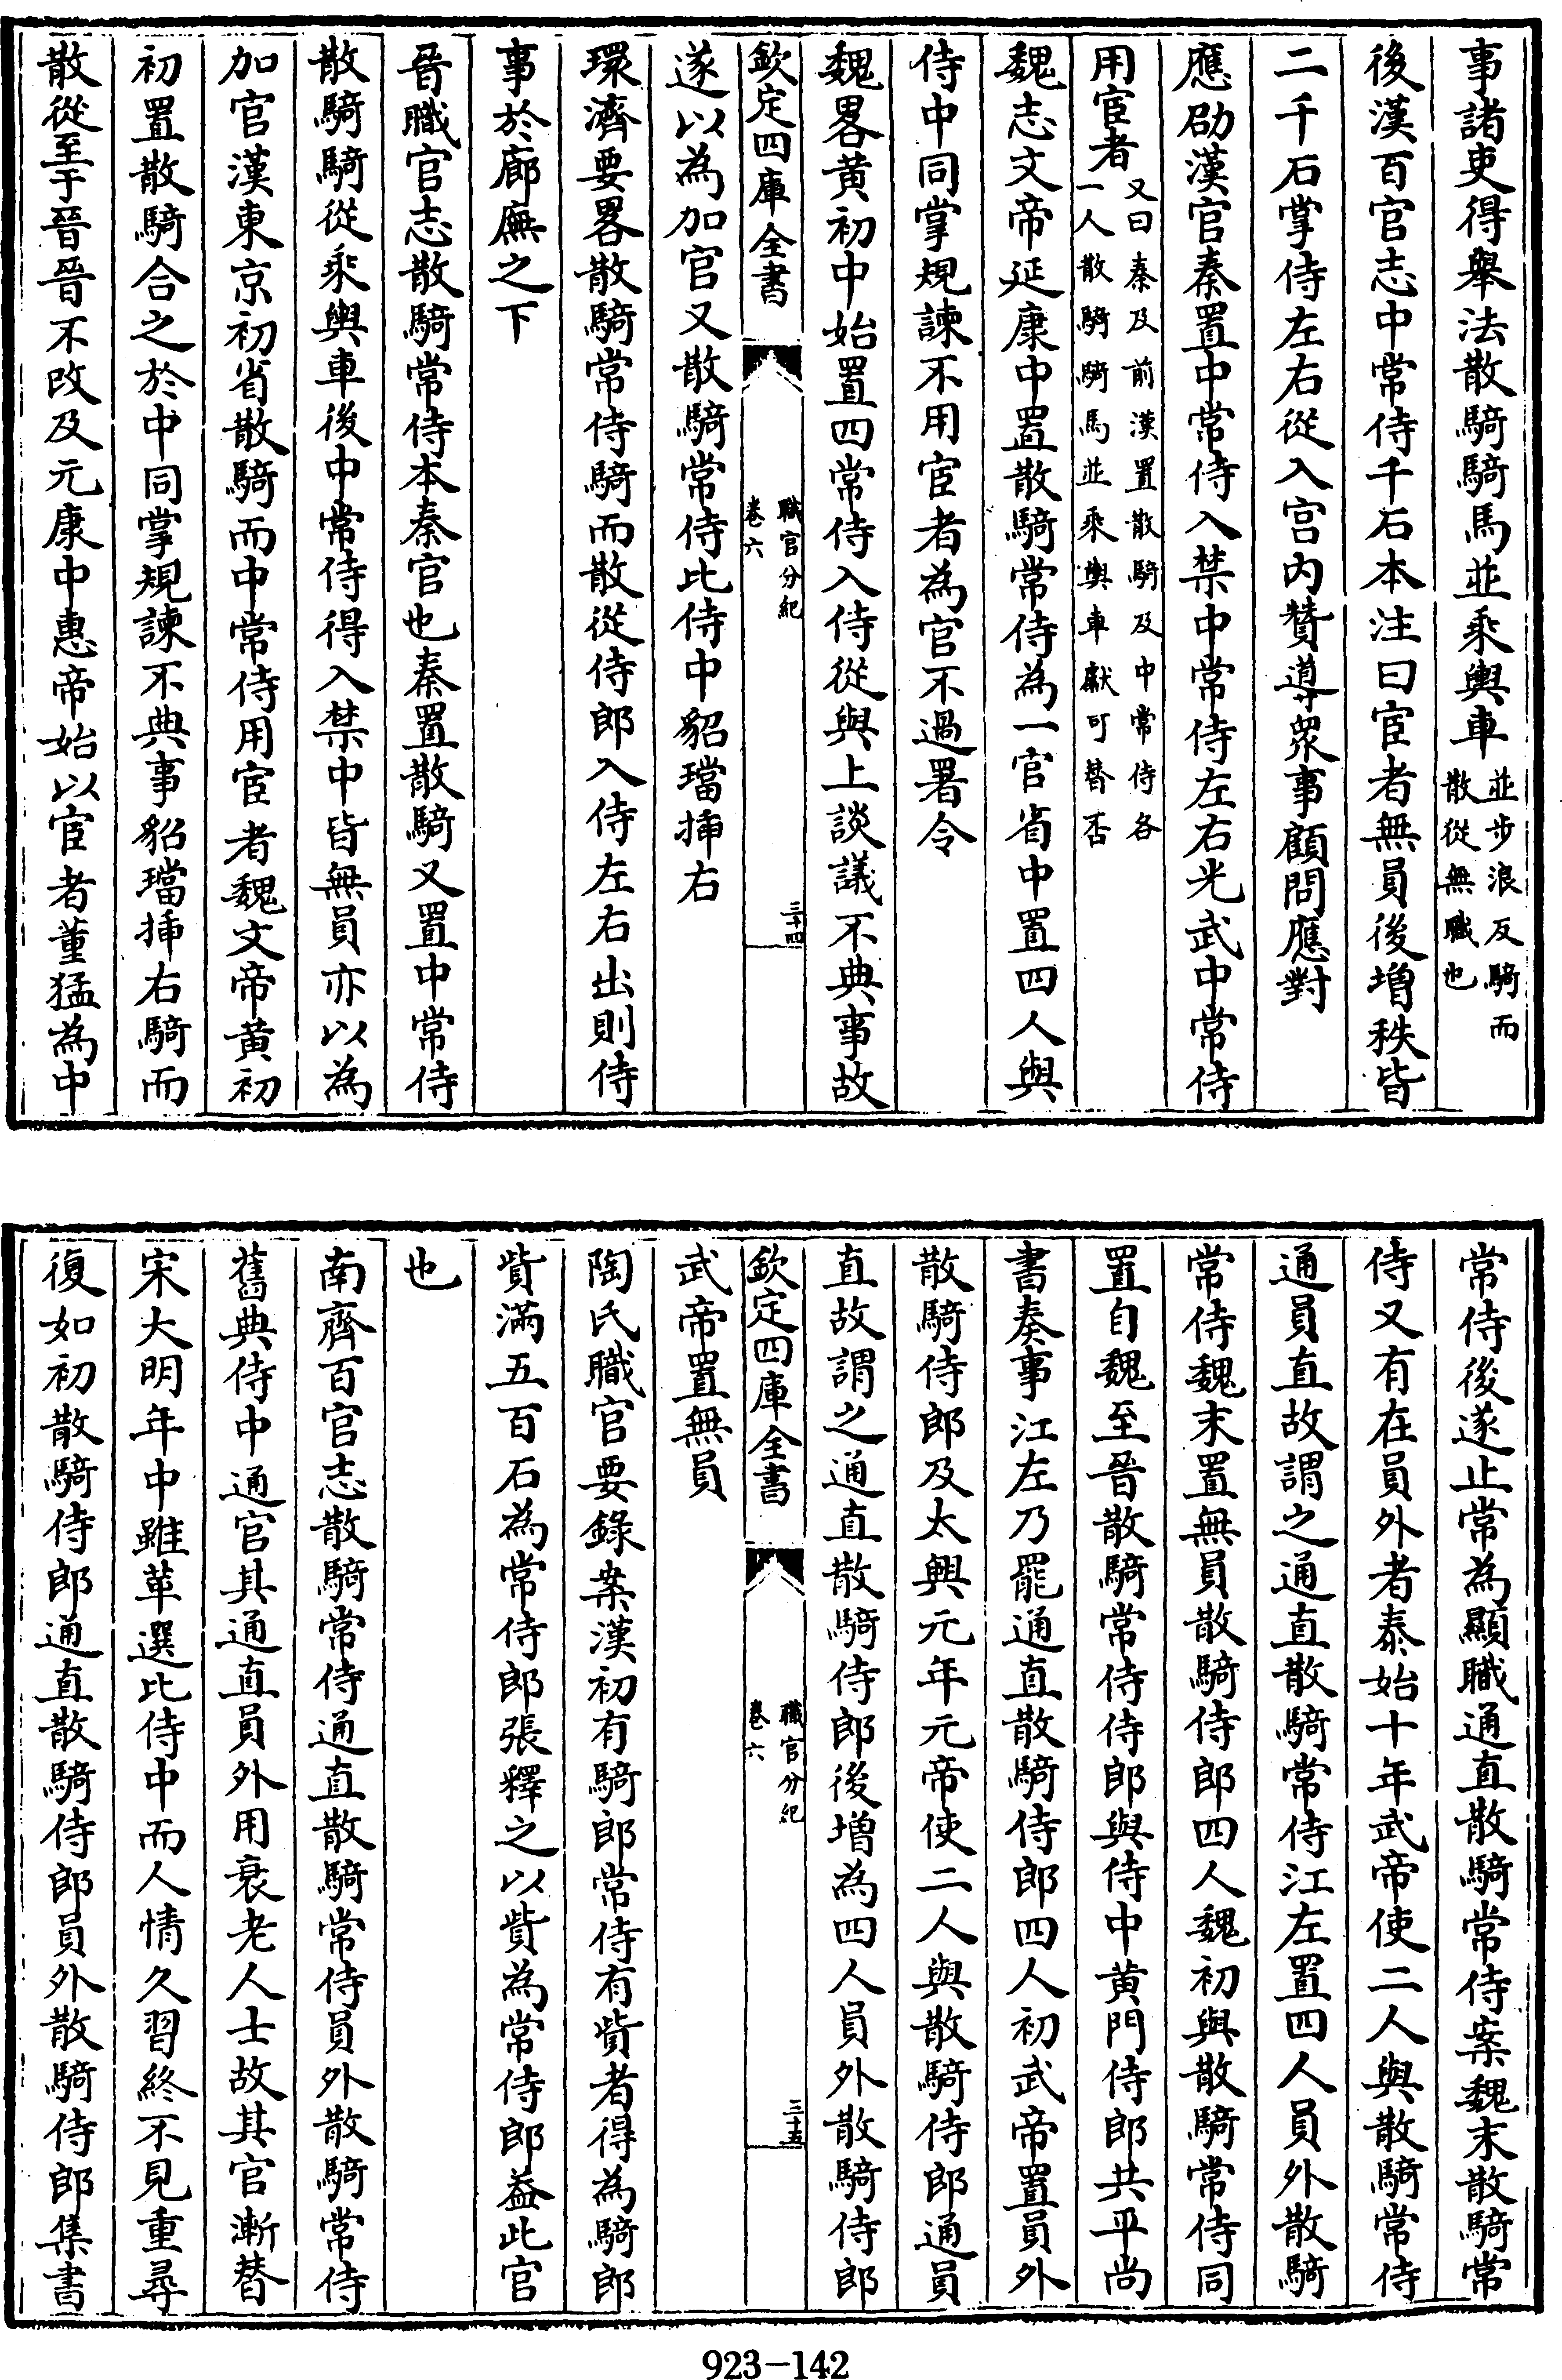 事諸吏得舉法散騎騎馬並乘輿車並步浪反騎而散從無職也
後漢百官志中常侍千石本注曰宦者無員後增秩皆
二千石掌侍左右從入宫内贊導衆事顧問應對
應劭漢官秦置中常侍入禁中常侍左右光武中常侍
用宦者又曰秦及前漢置散騎及中常侍各一人散騎騎馬並乘輿車獻可替否
魏志文帝延康中置散騎常侍為一官省中置四人與
侍中同掌規諫不用宦者為官不過署令
魏畧黄初中始置四常侍入侍從與上談議不典事故
欽定四庫全書
職官分紀
卷六
三十四
遂以為加官又散騎常侍比侍中貂璫揷右
環濟要畧散騎常侍騎而散從侍郎入侍左右出則侍
事於廊廡之下
晉職官志散騎常侍本秦官也秦置散騎又置中常侍
散騎騎從乘輿車後中常侍得入禁中皆無員亦以為
加官漢東京初省散騎而中常侍用宦者魏文帝黄初
初置散騎合之於中同掌規諫不典事貂璫揷右騎而
散從至于晉晉不改及元康中惠帝始以宦者董猛為中
常侍後遂止常為顯職通直散騎常侍案魏末散騎常
侍又有在員外者泰始十年武帝使二人與散騎常侍
通員直故謂之通直散騎常侍江左置四人員外散騎
常侍魏末置無員散騎侍郎四人魏初與散騎常侍同
置自魏至晉散騎常侍侍郎與侍中黄門侍郎共平尚
書奏事江左乃罷通直散騎侍郎四人初武帝置員外
散騎侍郎及太興元年元帝使二人與散騎侍郎通員
直故謂之通直散騎侍郎後增為四人員外散騎侍郎
欽定四庫全書
職官分紀
卷六
三十五
武帝置無員
陶氏職官要錄案漢初有騎郎常侍有貲者得為騎郎
貲滿五百石為常侍郎張釋之以貲為常侍郎益此官
也
南齊百官志散騎常侍通直散騎常侍員外散騎常侍
舊典侍中通官其通直員外用衰老人士故其官漸替
宋大明年中雖革選比侍中而人情久習終不見重尋
復如初散騎侍郎通直散騎侍郎員外散騎侍郎集書
923-142